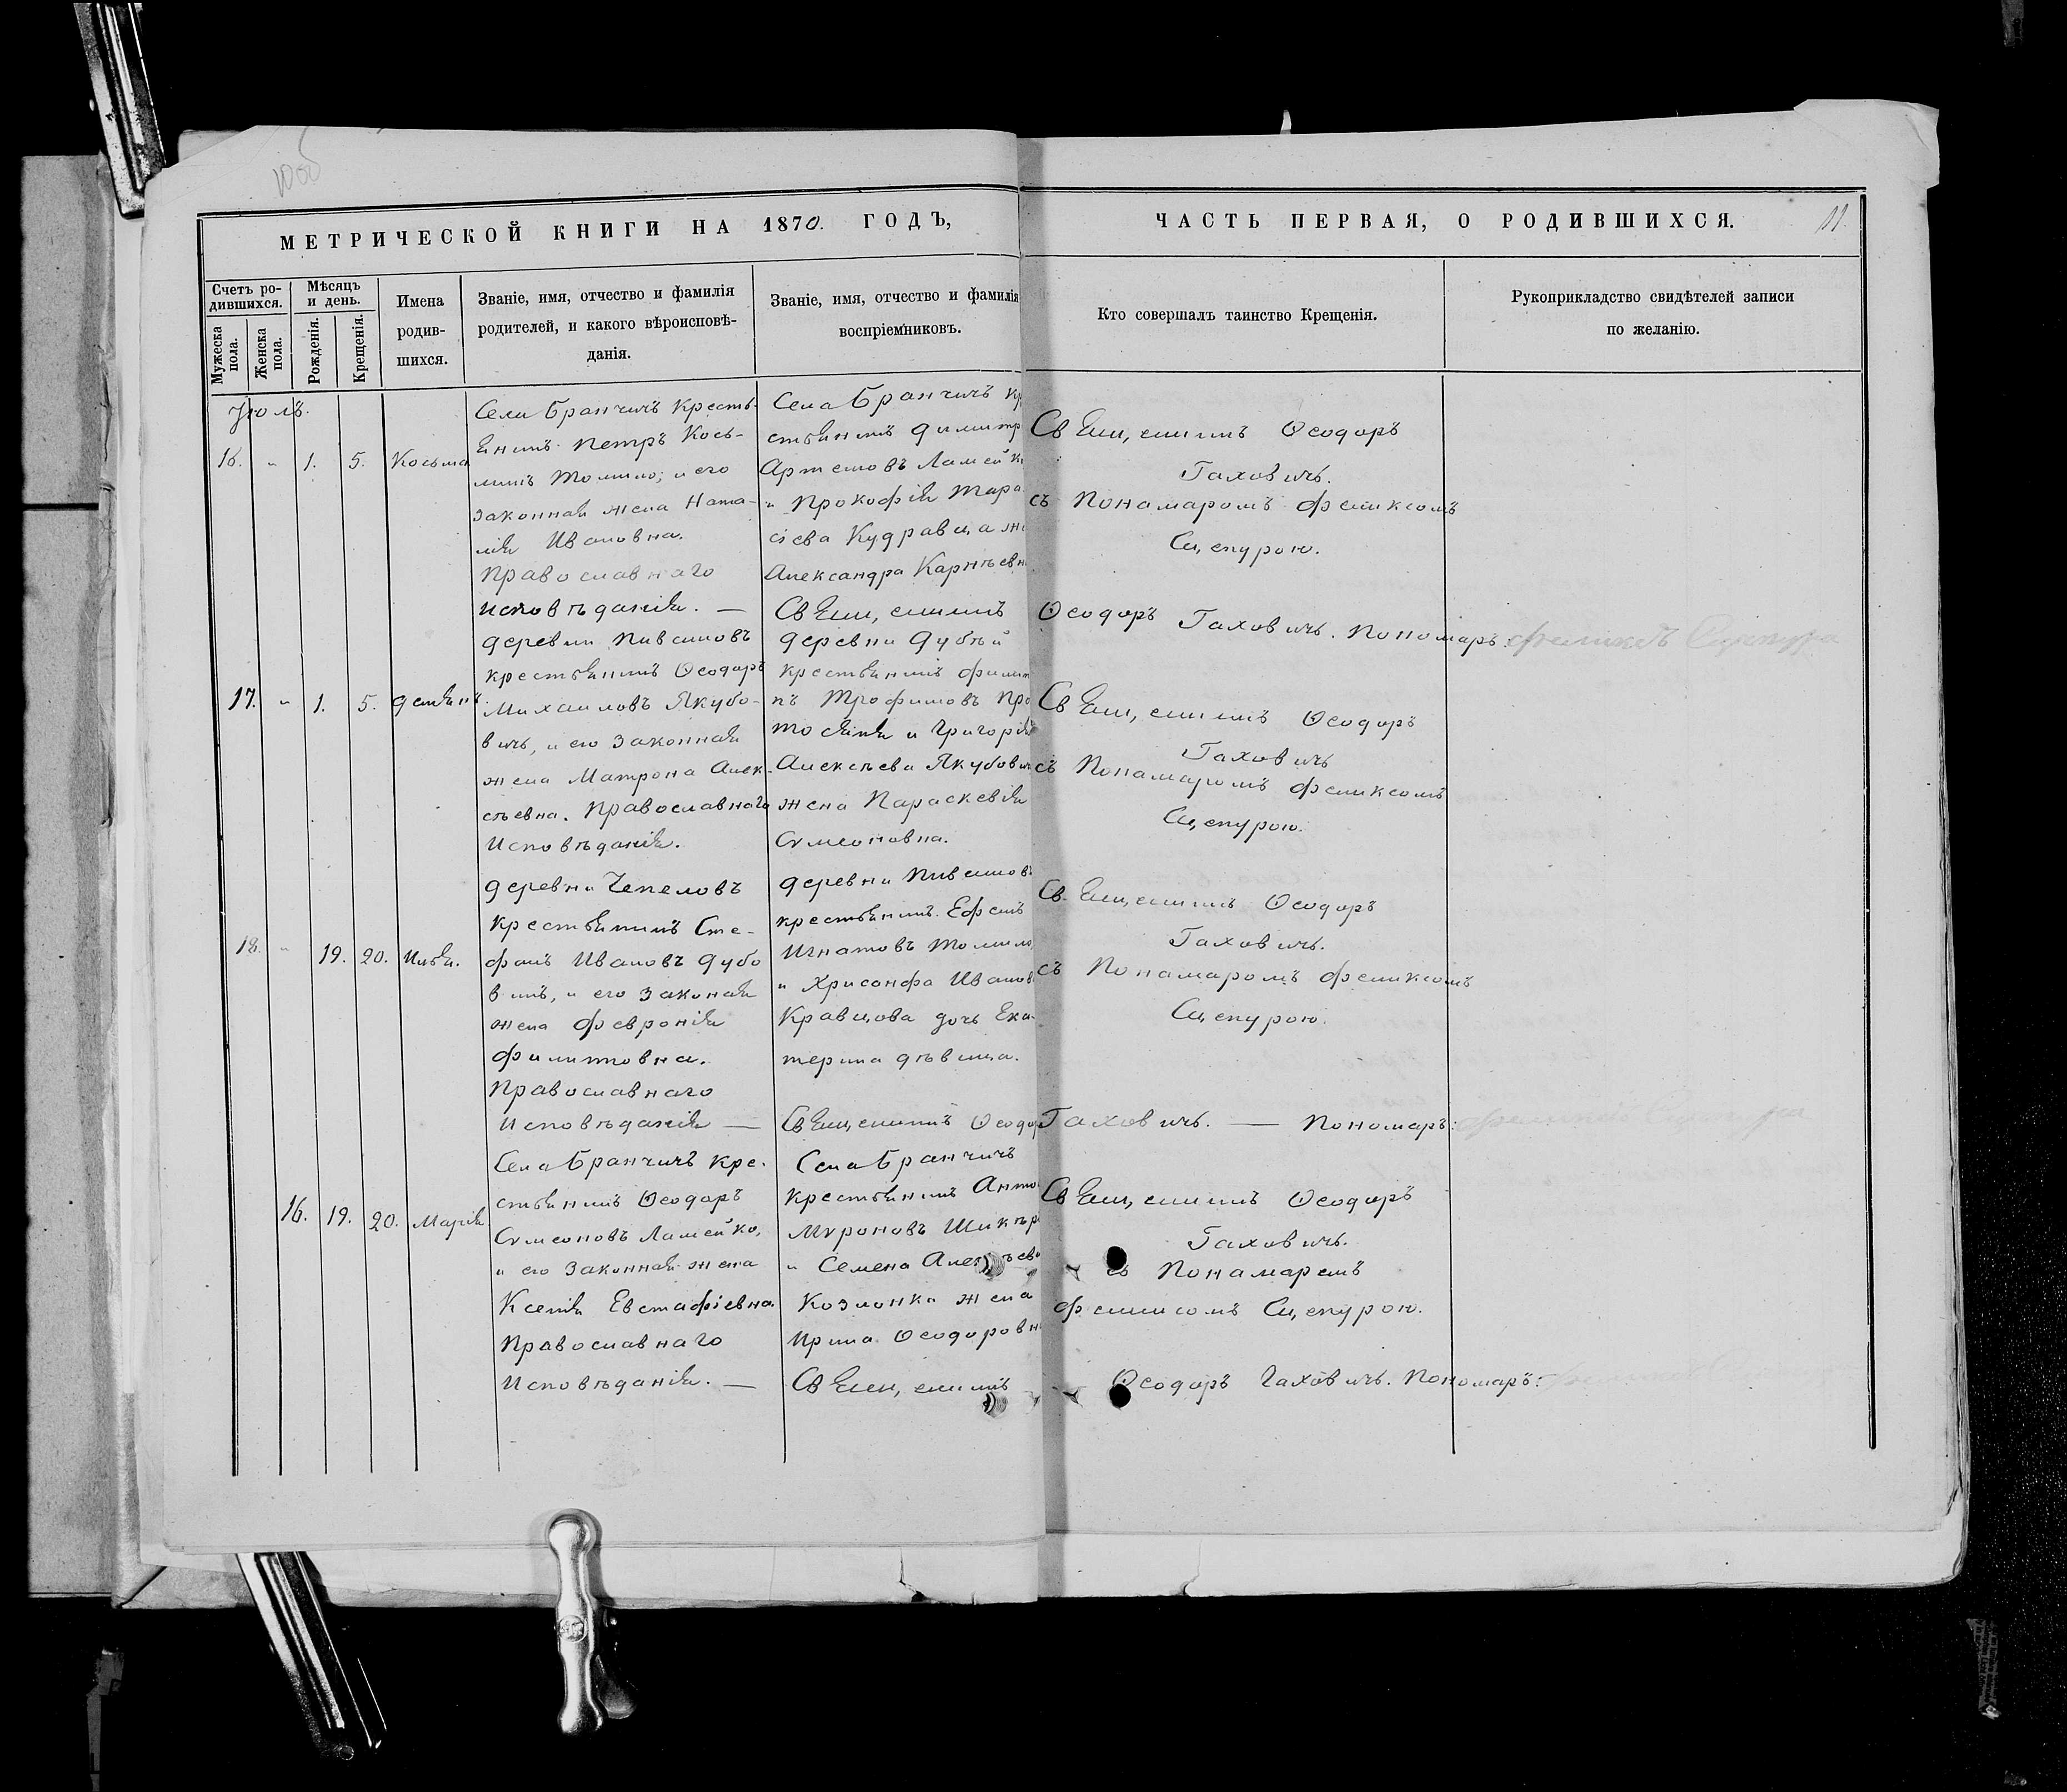 МЕТРИЧЕСКОЙ КНИГИ НА 1870. ГОДЪ,
ЧАСТЬ ПЕРВАЯ, О РОДИВШИХСЯ.
11.
Счетъ ро-
дившихся.
Мужеска
пола.
Женска
пола.
Мѣсяцъ
и день.
Рожденія.
Крещенія.
Имена
родив-
шихся.
Званіе, имя, отчество и фамилія
родителей, и какого вѣроисповѣ-
данія.
Званіе, имя, отчество и фамилія
воспріемниковъ.
Кто совершалъ таинство Крещенія.
Рукоприкладство свидѣтелей записи
по желанію.
Іюль.
16. " 1. 5. Косьма
Села Бранчичъ кресть-
янинъ Петръ Кось-
минъ Томило; и его
законная жена Ната-
лія Ивановна.
Православнаго
Исповѣданія. —
Села Бранчичъ кре
стьянинъ Димитр
Артемовъ Ламейк
и Прокофія Тара
сіева Кудравца же
Александра Карнѣевн
Священникъ Ѳеодоръ
Гаховичъ.
съ Пономаромъ Феликсомъ
Сцепурою.
Священникъ Ѳеодоръ Гаховичъ. Пономаръ: Феликсъ Сцепура
17. " 1. 5. Деміянъ
деревни Пивашовъ
крестьянинъ Ѳеодоръ
Михаиловъ Якубо-
вичъ, и его законная
жена Матрона Алек-
сѣевна. Православнаго
Исповѣданія.
деревни Дубѣй
крестьянинъ Филип
пъ Трофимовъ Про
тосѣня и Григорія
Алексѣева Якубович
жена Параскевія
Сѵмеоновна.
Священникъ Ѳеодоръ
Гаховичъ
съ Пономаромъ Феликсомъ
Сцепурою.
18. " 19. 20. Илья.
деревни Чепеловъ
Крестьянинъ Сте-
фанъ Ивановъ Дубо
викъ, и его законая
жена Февронія
Филиповна.
Православнаго
Исповѣданія —
деревни Пивашовъ
крестьянинъ Ефремъ
Игнатовъ Томило,
и Хрисанфа Иванов
Кравцова дочь Ека-
терина дѣвица.
Священникъ Ѳеодоръ
Гаховичъ.
съ Пономаромъ Феликсомъ
Сцепурою.
Священникъ Ѳеодор Гаховичъ. — Пономаръ:
16. 19. 20. Марія.
Села Бранчичъ кре-
стьянинъ Ѳеодоръ
Сѵмеоновъ Ламейко,
и его законная жена
Ксенія Евстафіевна
Православнаго
Исповѣданія. —
Села Бранчичъ
крестьянинъ Анто
Мѵроновъ Шикѣр
и Семена
Козлонки жена
Ирина Ѳеодоровн
Священникъ Ѳеодоръ
Гаховичъ.
съ Пономаремъ
Феликсомъ Сцепурою.
Священникъ Ѳеодоръ Гаховичъ. Пономаръ: